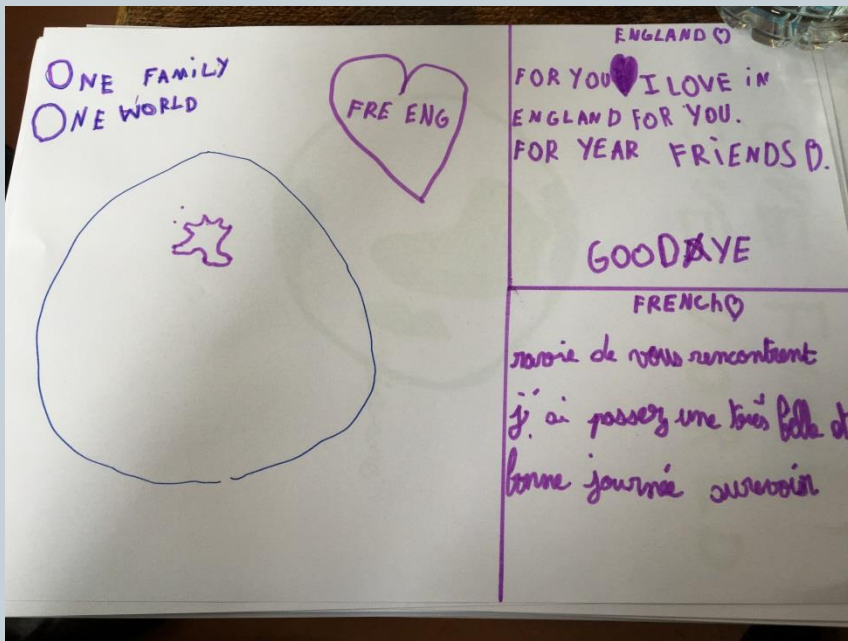 ONE FAMILY
ONE WORLD
FRE ENG
ENGLAND
FOR YOU I LOVE iN
ENGLAND FOR YOU.
FOR YEAR FRiENDS
GOODYE
FRENCh
ravoie de vous rencontrent
j'ai passez une très belle et
bonne journée aurevoir